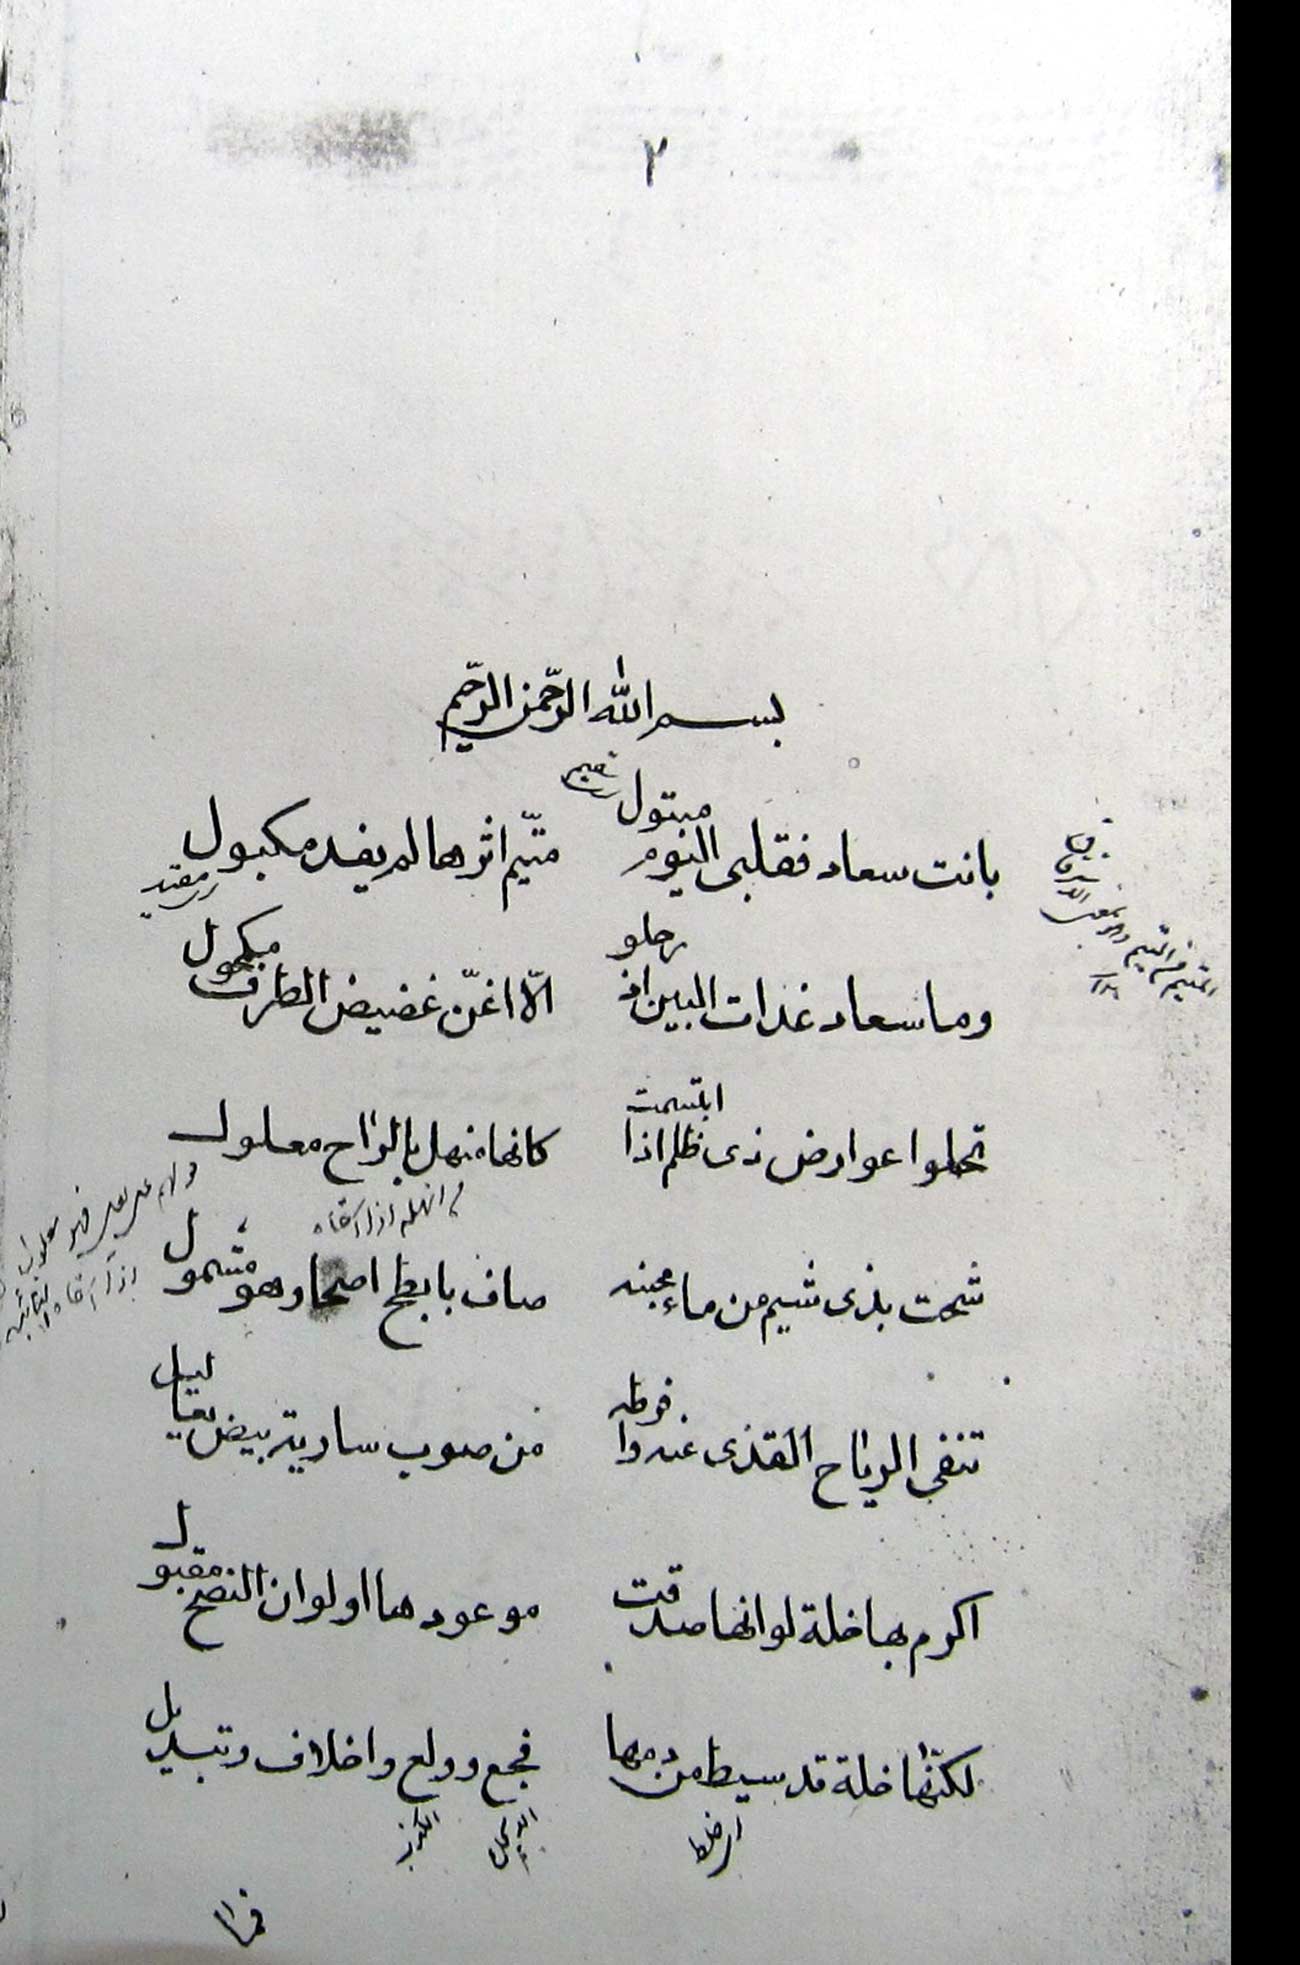 ٢
بسم الله الرّحمن الرّحيم
بانت سعاد فقلبى اليوم مبتول متيّم اثرها لم يفد مكبول
وما سعاد غدات البين اذ رحلو الّا اغنّ غضيض الطرف مكحول
تجلوا عوارض ذى ظلم اذا ابتسمت كانها منهل بالرّاح معلول
شجت بذى شيم من ماء مجنه صاف بابطح اضحا وهو مشمول
تنفى الرياح القذى عنه وا فرطه من صوب سارية بيض يعاليل
اكرم بها خلة لوانها صدقت موعودها اولوان النصح مقبول
لكنّها خلة قد سيط من دمها فجع وولع واخلاف وتبديل
اى خلط
الكذب
فما